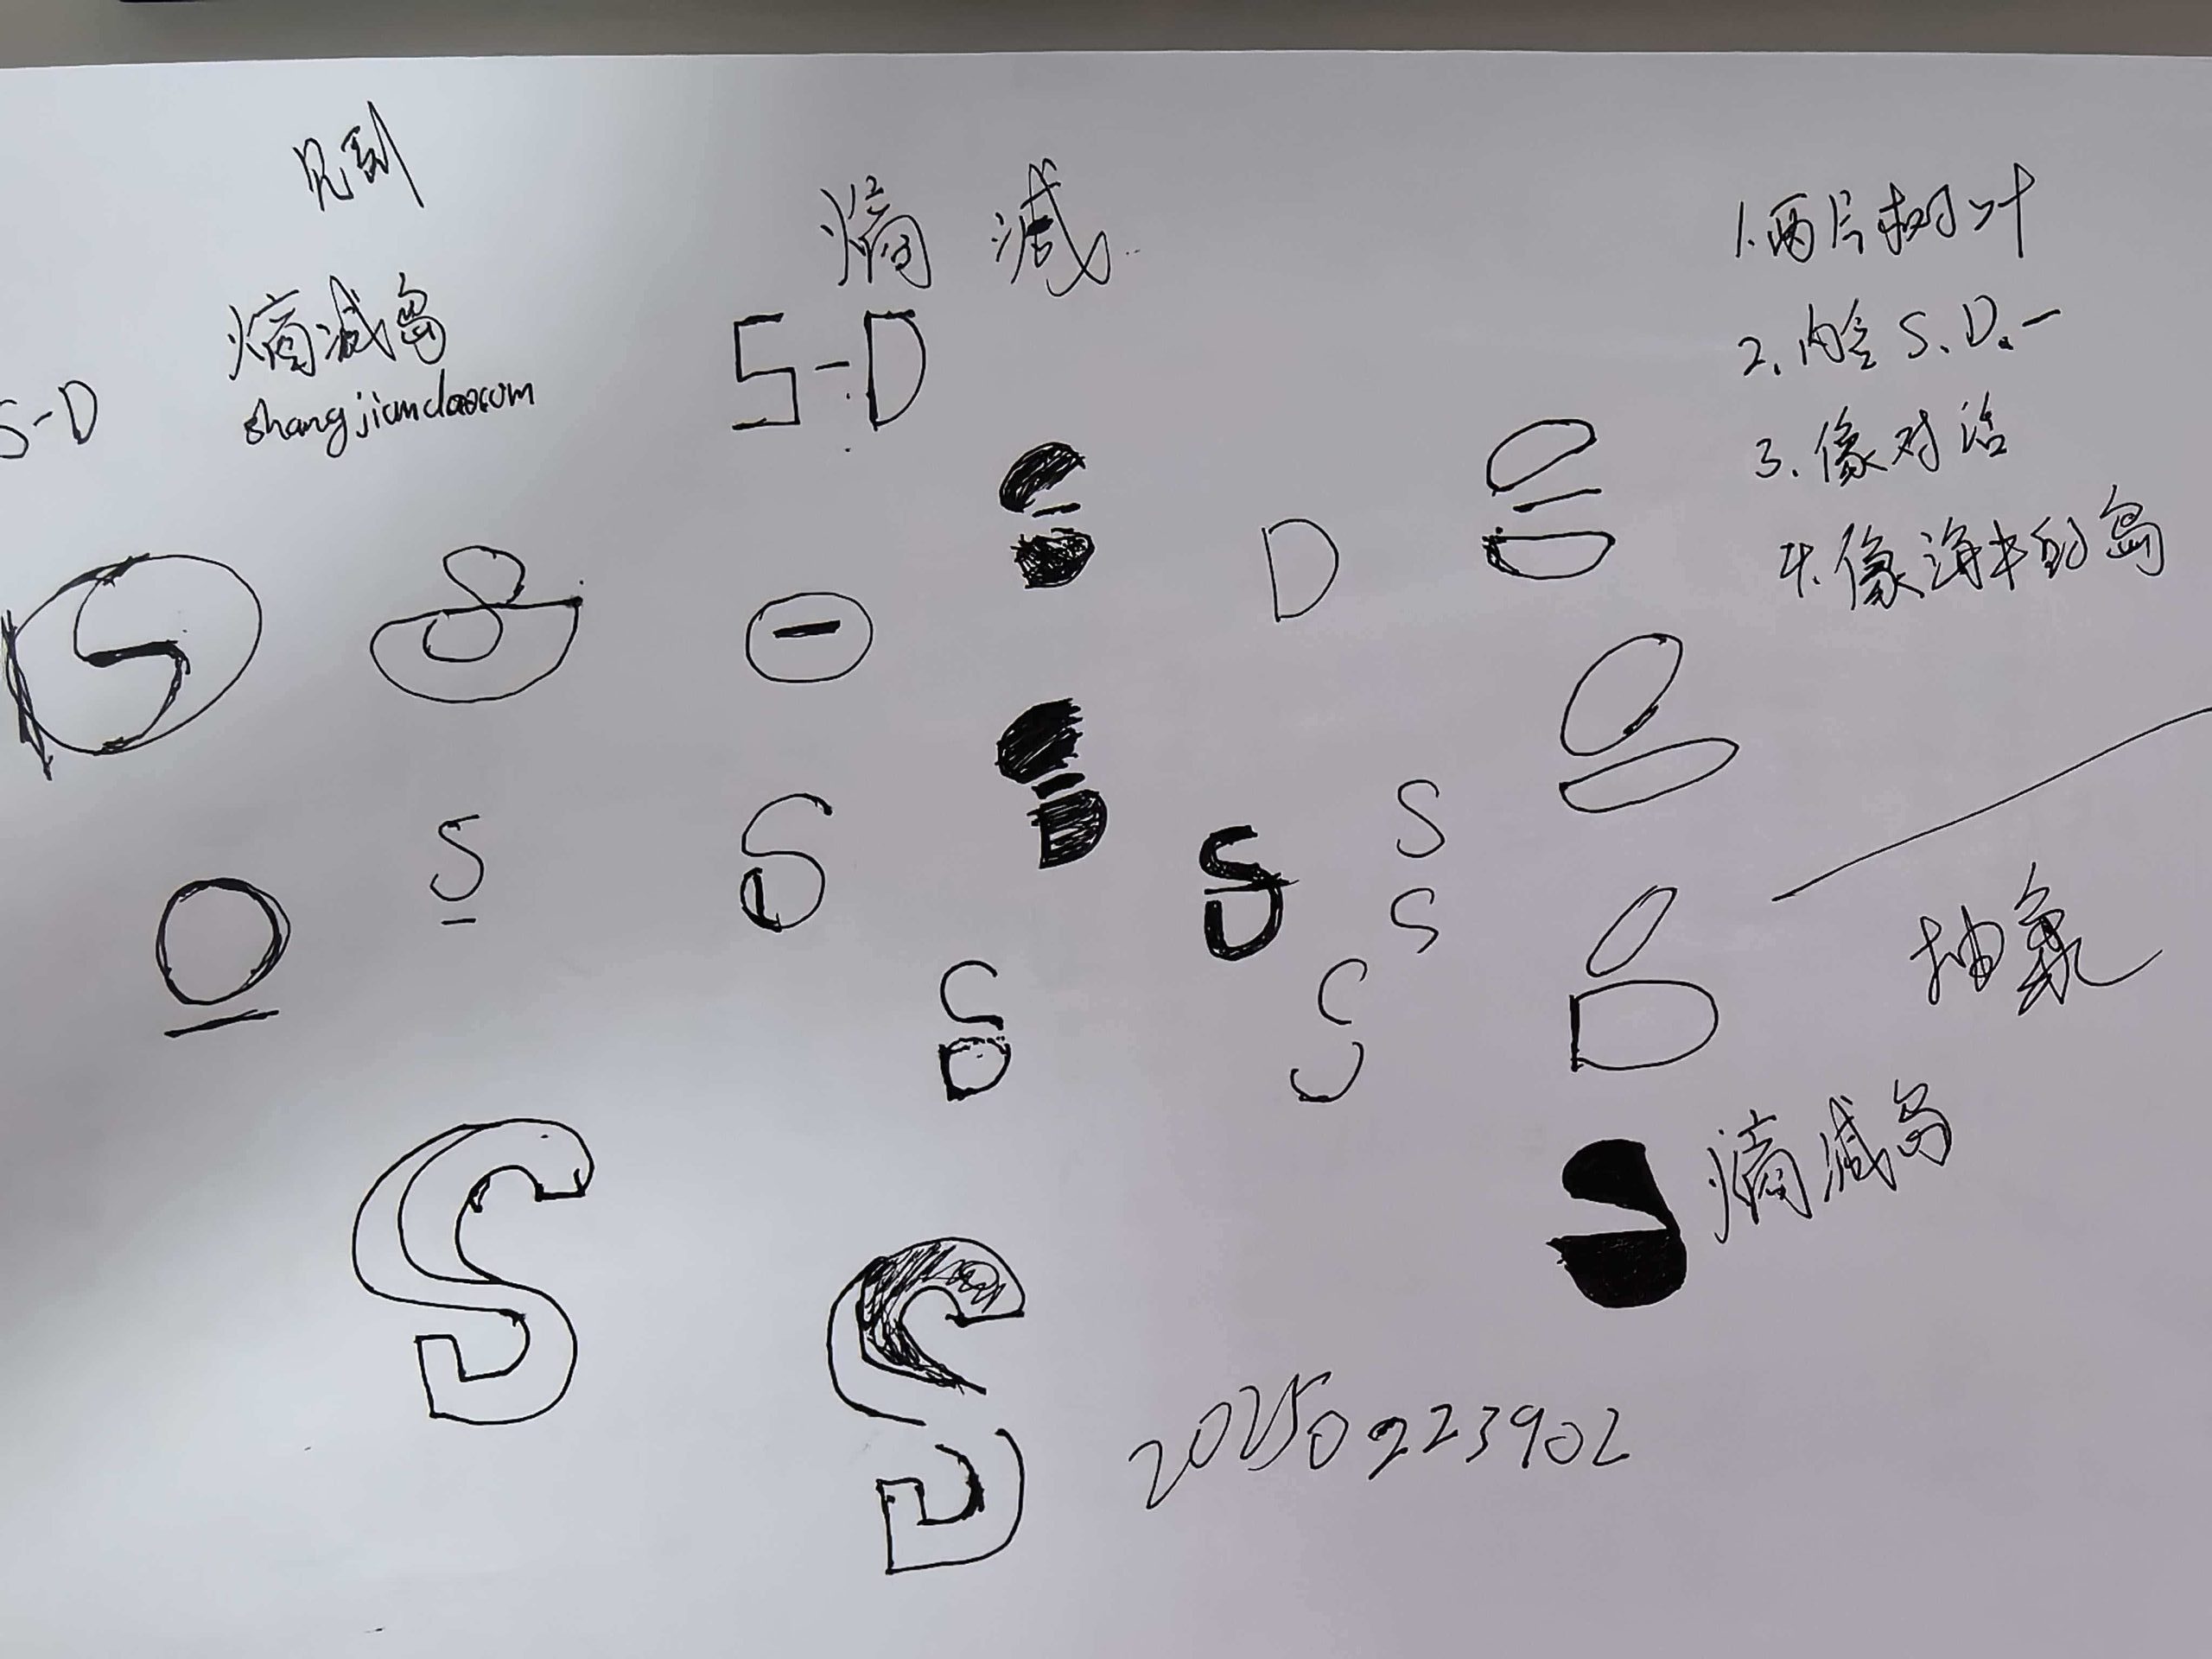 见到
熵减岛
shangjiandao.com
S-D
熵减
S-D
1.两片树叶
2.内含S.D.-
3.像对话
4.像海中的岛
D
S
S
S
S
抽象
熵减岛
20250223902